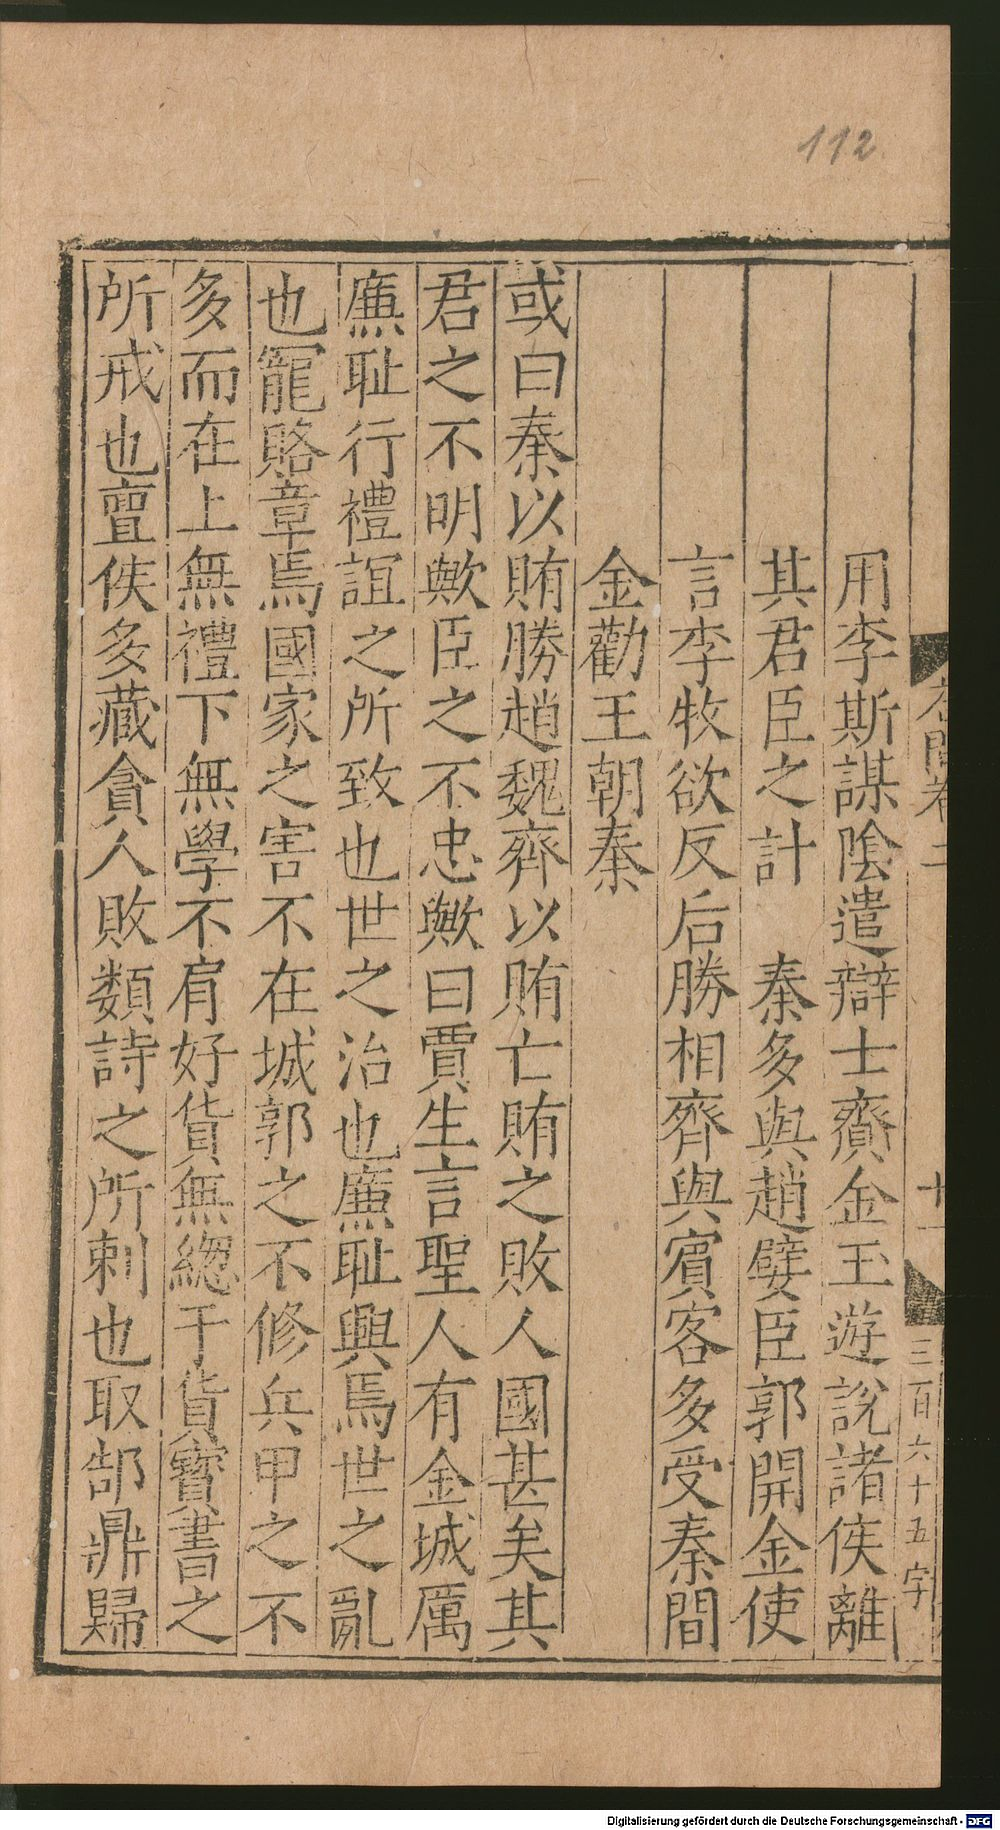 112
用李斯謀陰遣辯士齎金玉遊說諸侯離
其君臣之計　秦多與趙嬖臣郭開金使
言李牧欲反后勝相齊與賓客多受秦間
金勸王朝秦
或曰秦以賄勝趙魏齊以賄亡賄之敗人國甚矣其
君之不明歟臣之不忠歟曰賈生言聖人有金城厲
廉耻行禮誼之所致也世之治也廉耻興焉世之亂
也寵賂章焉國家之害不在城郭之不修兵甲之不
多而在上無禮下無學不肩好貨無緫于貨寳書之
所戒也亶侯多藏貪人敗類詩之所刺也取郜鼎歸
卷二
十一
三百六十五字
Digitalisierung gefördert durch die Deutsche Forschungsgemeinschaft - DFG